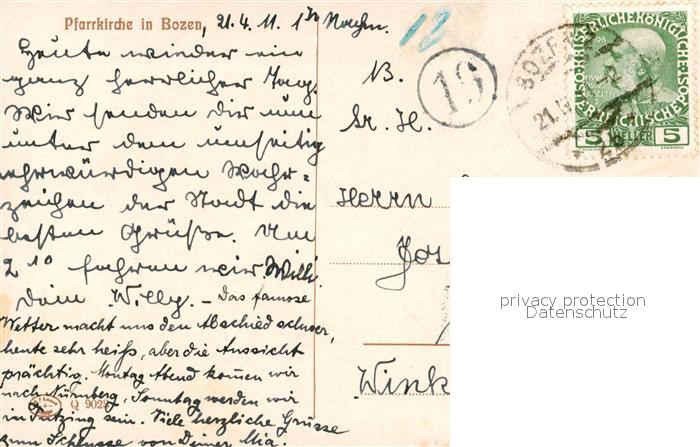 Pfarrkirche in Bozen, 21.4.11. 1 h Nachm.
Heute wieder ein
ganz herrlicher Tag.
Wir senden dir nun
unter dem umseitig
ehrwürdigen Wahr-
zeichen der Stadt die
besten Grüße. Um
2 10 fahren wir Willi.
Dein Willy. - Das famose
Wetter macht uns den Abschied schwer,
heute sehr heiß, aber die Aussicht
prächtig. Montag Abend kommen wir
nach Nürnberg, Sonntag werden wir
in Tutzing sein. Viele herzliche Grüsse
zum Schlusse von Deiner Mia.
Q 902
13
19
N.
Sr. H.
Herrn
Jos
Wink
BOZEN
21. IV
5 HELLER 5
privacy protection
Datenschutz